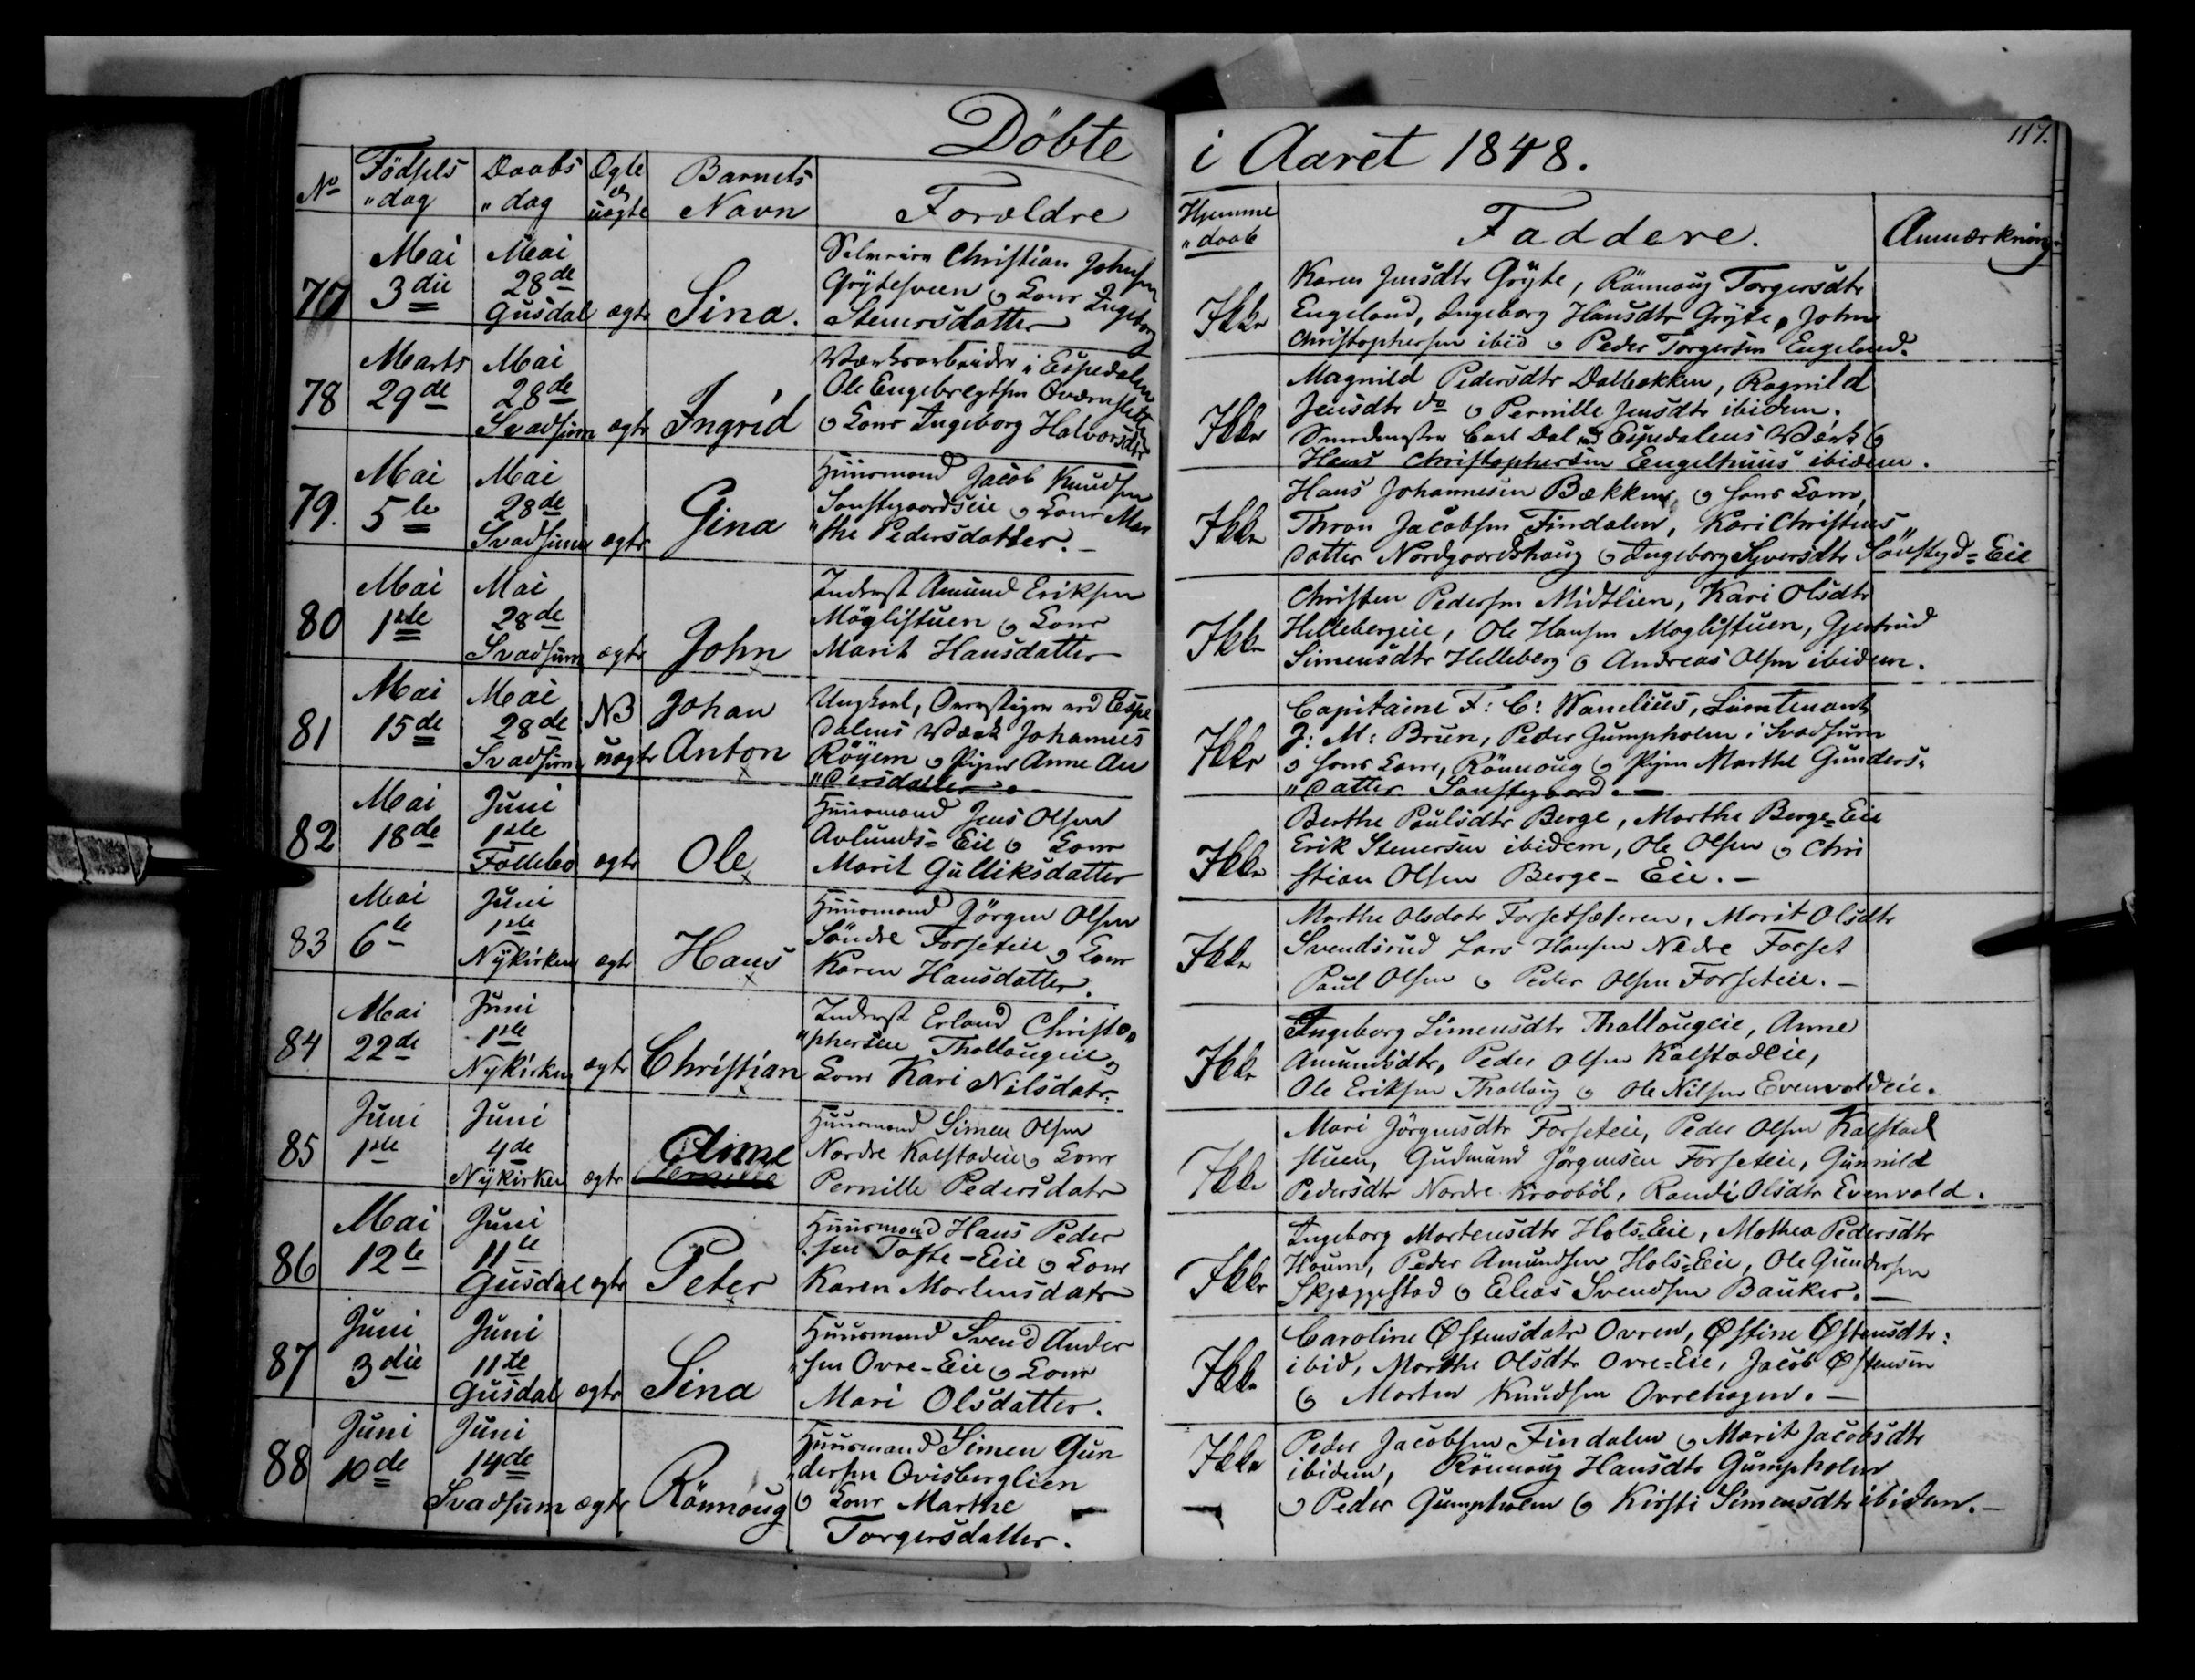 Döbte i Aaret 1848.
117.
No Födsels "dag Daabs "dag Ægte & uægte Barnets Navn Forældre Hjemme "daab Faddere. Anmærkning
77 Mai 3die Mai 28de Gusdal ægte Sina.
Christian Johnsen
Gryteseen & Kone Ingeborg
Stenersdatter
Ikke
Karen Jensdtr Gryte, Rönnoug Torgersdtr
Engeland, Ingeborg Hansdtr Gryte, John
Christophersen ibid & Peder Torgersen Engeland.
78 Marts 29de Mai 28de Svadsum ægte Ingrid
Værksarbeider i Espedalen
Ole Engebregtsen
& Kone Ingeborg Halvorsdtr
Ikke
Magnild Pedersdtr Dalbakken, Ragnild
Jensdtr do & Pernille Jensdtr ibidem.
Smedmester Carl Dal ved Espedalens Værk &
Hans Christophersen Engelhuus ibidem.
79. Mai 5te Mai 28de Svadsum ægte Gina
Huusmand Jacob Knudsen
Sonstegaardseie & Kone Mar
"the Pedersdatter.-
Ikke
Hans Johannesen Bækken, & hans Kone,
Thron Jacobsen Findalen, Kari Christens"
datter Nordgaardshaug & Ingeborg Syversdtr Sönstgd=Eie
80 Mai 1ste Mai 28de Svadsum ægte John
Inderst Amund Eriksen
Möglistuen & Kone
Marit Hansdatter
Ikke
Christen Pedersen Midtlien, Kari Olsdtr
Hellebergeie, Ole Hansen Moglistuen, Gjertrud
Simensdtr Helleberg & Andreas Olsen ibidem.
81 Mai 15de Mai 28de Svadsum NB uægte Johan Anton
Ungkarl, Overstiger ved Espe
dalens Værk Johannes
Röyem & Pigen Anne An
"dersdatter.
Ikke
Capitaine F: C: Wamelius, Lieutenant
J: M: Brun, Peder Gumpholen i Svadsum
& hans Kone, Rönnoug & Pigen Marthe Gunders=
"datter Sonstegaard.-
82 Mai 18de Juni 1ste Follebo ægte Ole
Huusmand Jens Olsen
Avlunds=Eie & Kone
Marit Gulliksdatter
Ikke
Berthe Paulsdtr Berge, Marthe Berge=Eie
Erik Stenersen ibidem, Ole Olsen & Chri
stian Olsen Berge-Eie.-
83 Mai 6te Juni 1ste Nykirken ægte Hans
Huusmand Jörgen Olsen
Söndre Forseteie & Kone
Karen Hansdatter.
Ikke
Marthe Olsdatr Forsetsæteren, Marit Olsdtr
Svendsrud Lars Hansen Nedre Forset
Paul Olsen & Peder Olsen Forseteie.-
84 Mai 22de Juni 1ste Nykirken ægte Christian
Inderst Erland Christo"
"phersen Thollougeie &
Kone Kari Nilsdatr.
Ikke
Ingeborg Simensdtr Thallougeie, Anne
Amundsdtr, Peder Olsen Kalstadeie,
Ole Eriksen Thalloug & Ole Nilsen Evenvoldeie.
85 Juni 1ste Juni 4de Nykirken ægte Anne
Pernille
Huusmand Simen Olsen
Nordre Kalstadeie & Kone
Pernille Pedersdatr
Ikke
Mari Jörgensdtr Forseteie, Peder Olsen Kalstad
stuen, Gudmund Jörgensen Forseteie, Gunnild
Pedersdtr Nordre Krooböl, Randi Olsdtr Evenvold.
86 Mai 12te Juni 11te Gusdal ægte Peter
Huusmand Hans Peder
"sen Tofte-Eie & Kone
Karen Mortensdatr
Ikke
Ingeborg Mortensdtr Hols=Eie, Mathea Pedersdtr
Houm, Peder Amundsen Hols=Eie, Ole Gundersen
Skjæggestad & Elias Svendsen Bauker.-
87 Juni 3die Juni 11te Gusdal ægte Sina
Huusmand Svend Ander
"sen Ovre-Eie & Kone
Mari Olsdatter.
Ikke
Caroline Østensdatr Ovren, Østine Østensdtr:
ibid, Marthe Olsdtr Ovre=Eie, Jacob Østensen
& Morten Knudsen Ovrehagen.-
88 Juni 10de Juni 14de Svadsum ægte Rönnoug
Huusmand Simen Gun
"dersen Qvisberglien
& Kone Marthe
Torgersdatter.
Ikke
Peder Jacobsen Findalen & Marit Jacobsdtr
ibidem, Rönnoug Hansdtr Gumpholen
& Peder Gumpholen & Kirsti Simensdtr ibidem.-